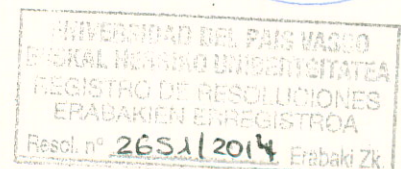 UNIVERSIDAD DEL PAIS VASCO
EUSKAL HERRIKO UNIBERTSITATEA
REGISTRO DE RESOLUCIONES
ERABAKIEN ERREGISTROA
Resol. nº 2651/2014 Erabaki Zk.